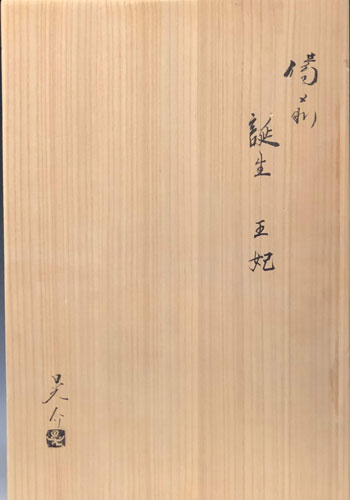 備前
誕生 王妃
晃介